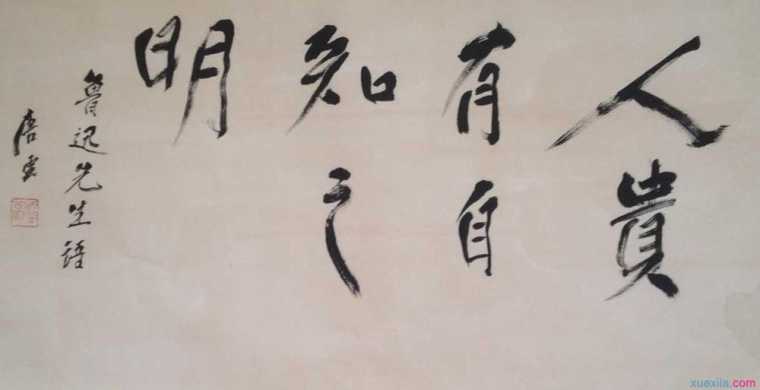 人貴
有自
知之
明
魯迅先生語
唐雲
xuexila.com